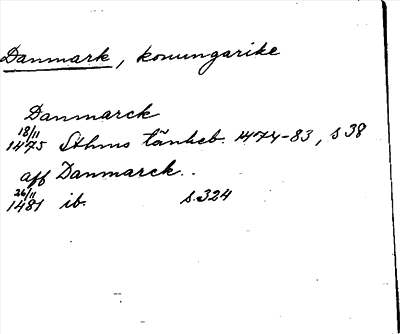 Danmark, konungarike
Danmarck
18/11 1475 Sthms tänkeb. 1474-83, s 38
aff Danmarck..
26/11 1481 ib. s. 324